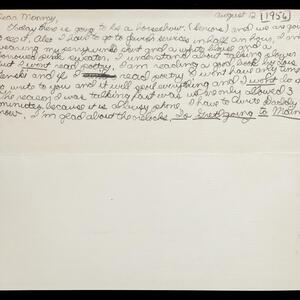 Dear Mommy, August 12 [1956]
Today there is going to be a horseshow. (Lenore) and we are going
to see it, Also I have to go to Jewish services in half an hour, I am
wearing my seersucker skirt and a white blouse and a
borrowed pink sweater, I understand about talking slower
but I won't read poetry, I am reading a good book by Lois
Lenski and if I read poetry I wont have any time
to write to you and it will spoil everything and I won't do it
The reason I was talking fast was we were only allowed 3
minutes because it is always phone, I have to write Daddy
now, I'm glad about the clocks, Is going to Maine